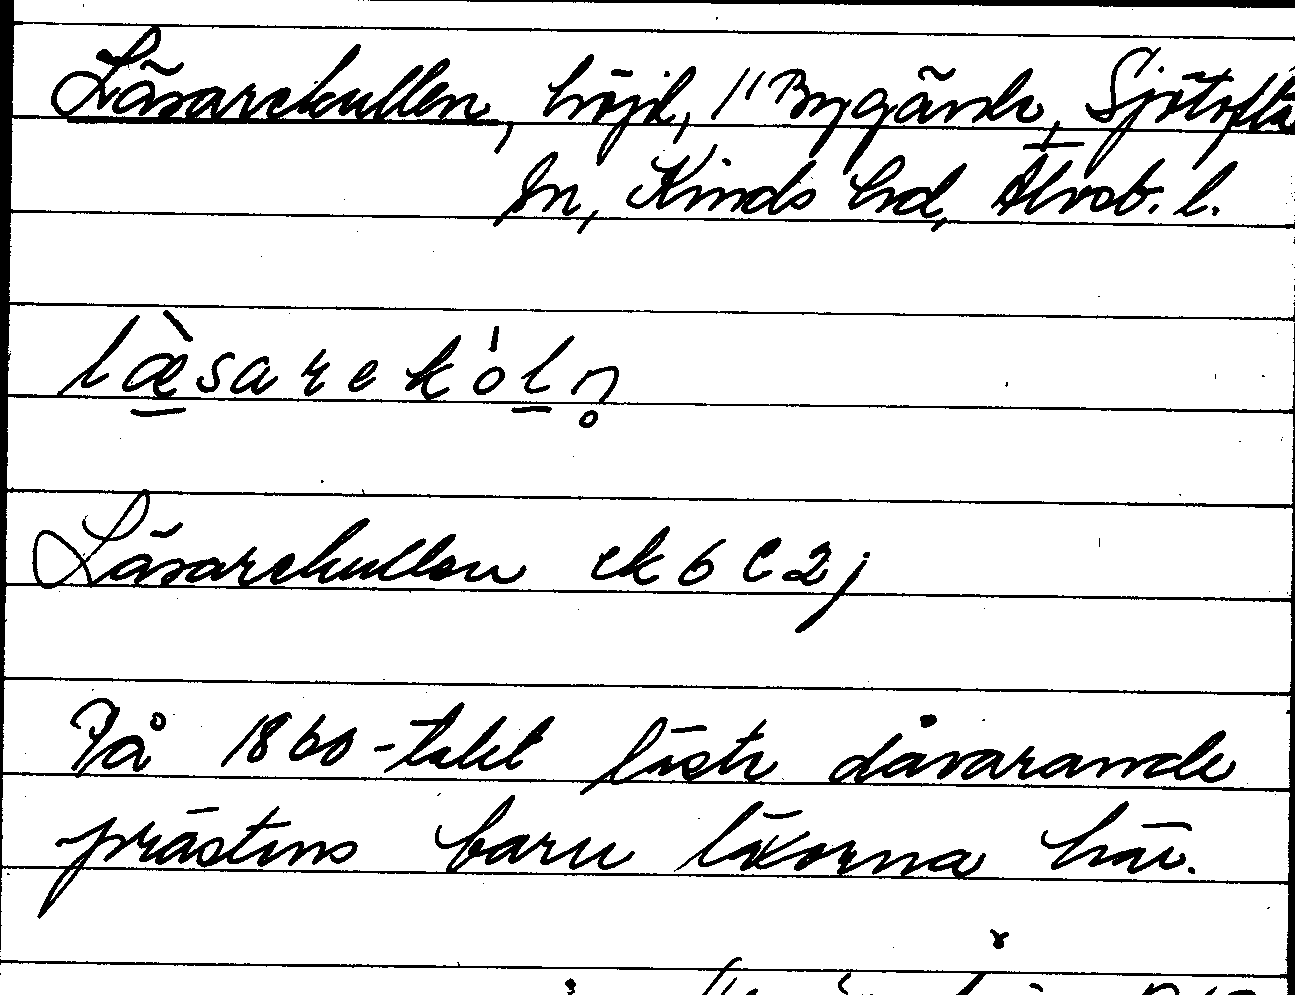 Läsarekullen, höjd, 1/1 Bygärde, Sjötofta
sn, Kinds hd, Älvsb. l.
læ̀sarekól̥n
Läsarekullen ek 6 C 2j
På 1860-talet läste dåvarande
prästens barn läxorna här.